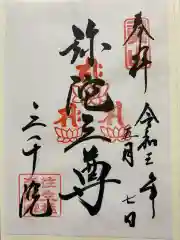 奉拝
令和三年
五月七日
弥陀三尊
三千院